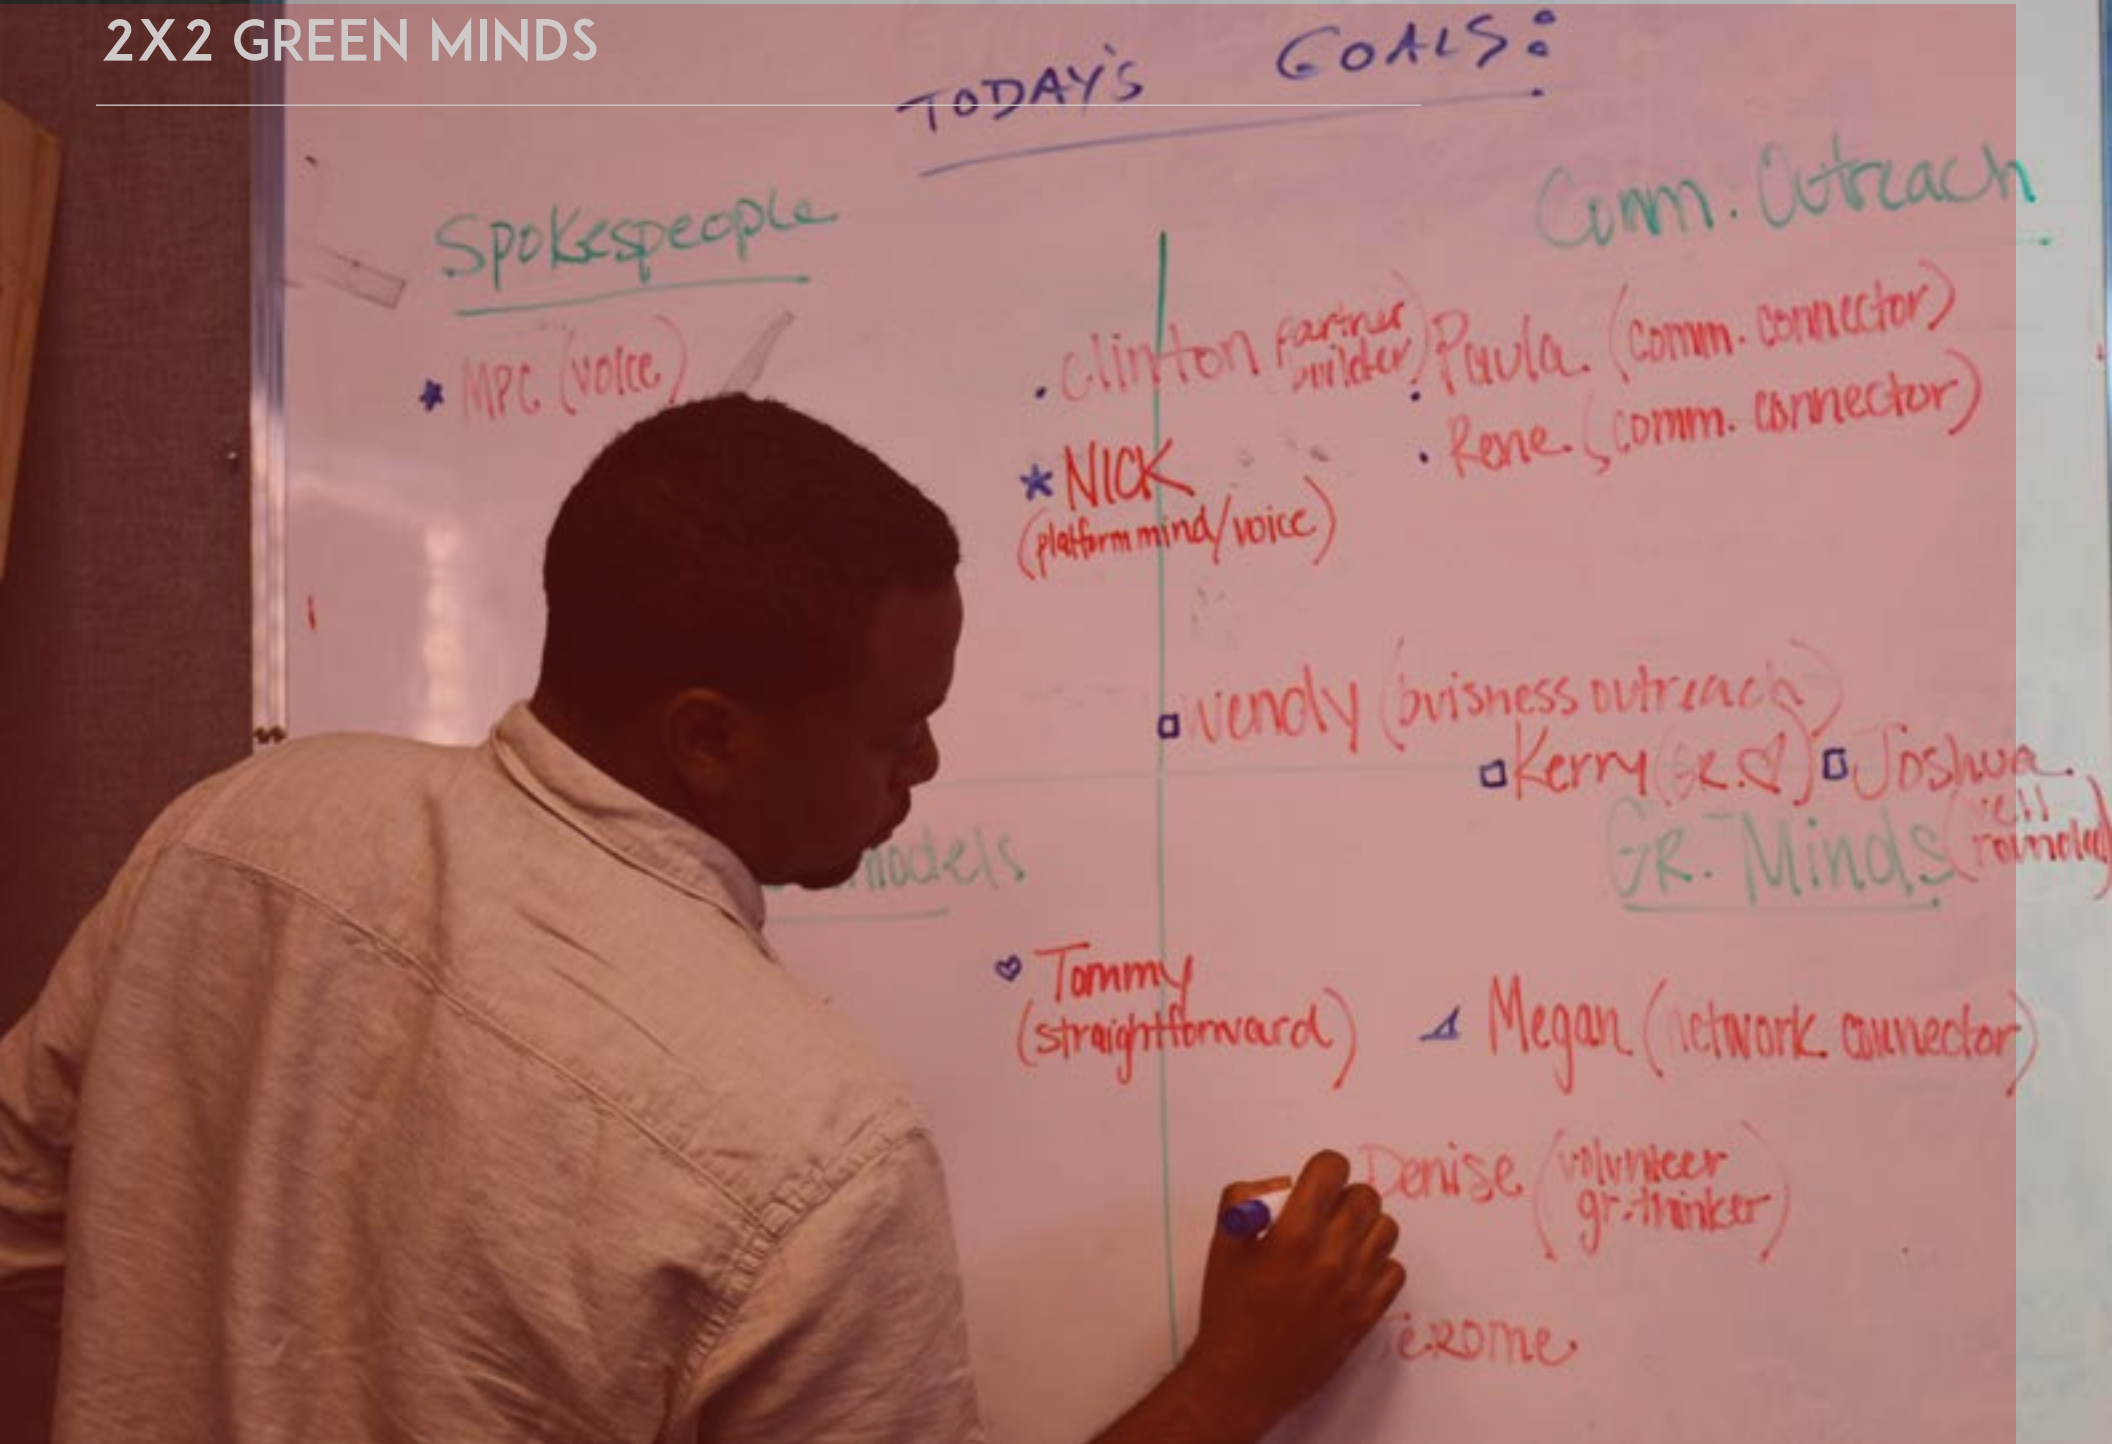 2X2 GREEN MINDS
TODAY'S GOALS:
Spokespeople
Comm. Outreach
* MPC (voice)
. Clinton partner builder) . Paula. (comm. connector)
. Rene. (comm. connector)
* NICK
(platform mind/voice)
wendy (buisness outreach)
Kerry (GR. ♡) Joshua.
rounded)
models
GR. Minds
♡ Tommy
(straightforward)
Megan (network connector)
Denise (volunteer
gr. thinker)